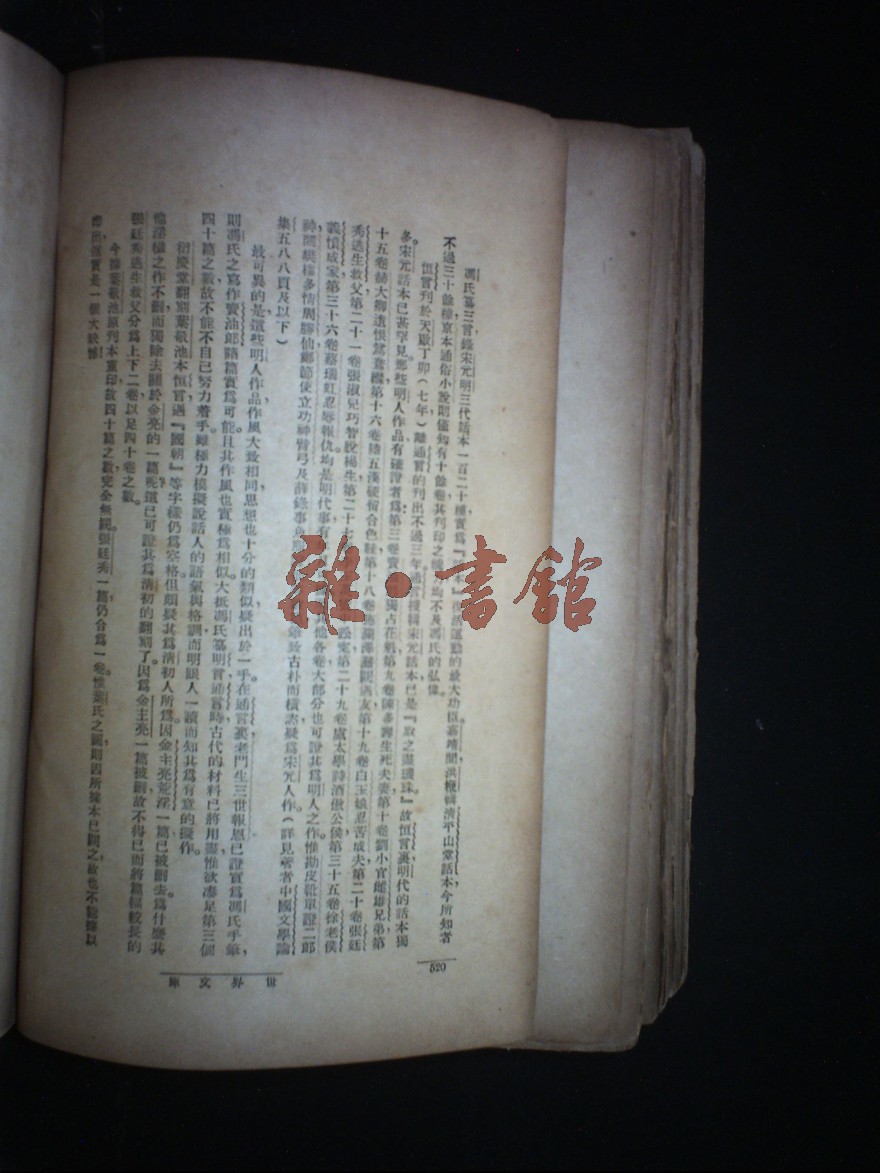 馮氏纂三言錄宋元明三代話本一百二十種實為『話本』復活運動的最大功臣嘉靖間洪楩輯清平山堂話本今所知者
不過三十餘種京本通俗小說則僅知有十餘卷其刊印之 均不及馮氏的弘偉。
恒言刊於天啟丁卯（七年）離通言的刊出不過三年 搜輯宋元話本已是『取之盡錙銖』故恒言裏明代的話本獨
多。宋元話本已甚罕見那些明人作品有確證者為第三卷賣 獨占花魁第九卷陳多壽生死夫妻第十卷劉小官雌雄兄弟第
十五卷赫大卿遺恨鴛鴦縧第十六卷陸五漢硬留合色鞋第十八卷施潤澤灘闕遇友第十九卷白玉娘忍苦成夫第二十卷張廷
秀逃生救父第二十一卷張淑兒巧智脫楊生第二十七 訟寃第二十九卷盧太學詩酒傲公侯第三十五卷徐老僕
義憤成家第三十六卷蔡瑞虹忍辱報仇均是明代事有 其他各卷大部分也可證其為明人之作惟勘皮靴單證二郎
神鬧樊樓多情周勝仙鄭節使立功神臂弓及薛錄事魚 雅致古朴而橫恣疑為宋元人作。（詳見著者中國文學論
集五八八頁及以下）
最可異的是這些明人作品作風大致相同思想也十分的類似疑出於一手在通言裏老門生三世報恩已證實為馮氏手筆，
則馮氏之寫作賣油郎諸篇實為可能且其作風也實極為相似。大抵馮氏纂明言通言時古代的材料已將用盡惟欲湊足第三個
四十篇之數故不能不自己努力着手雖極力模擬說話人的語氣與格調而明眼人一讀而知其為有意的擬作。
衍慶堂翻刻葉敬池本恒言遇『國朝』等字樣仍為空格但頗疑其為清初人所為。因金主亮荒淫一篇已被刪去為什麼其
他淫穢之作不刪而獨除去關於金亮的一篇呢這已可證其為清初的翻刻了因為金主亮一篇被刪故不得已而將篇幅較長的
張廷秀逃生救父分為上下二卷以足四十卷之數。
今據葉敬池原刊本重印故四十篇之數完全無闕。張廷秀一篇仍合為一卷。惟葉氏之圖則因所據本已闕之故也不能據以
印出這實是一個大缺憾
520
世界文庫
雜·書館